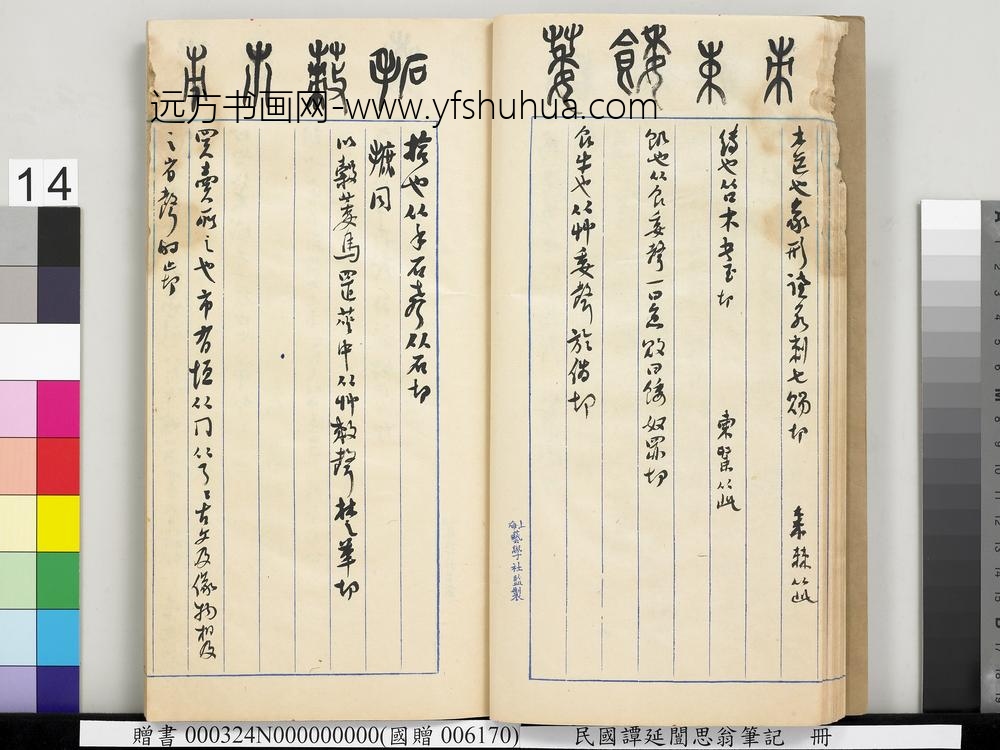 朿 束 餧 萎
木芒也象形讀若刺七賜切 棗棘从此
縛也从囗木書玉切 東㯥从此
飢也从食委聲一曰魚敗曰餒奴罪切
食牛也从艸委聲於偽切
上海藝學社監製
拓
拾也从手石聲之石切
摭同
以穀萎馬置莝中从艸敕聲楚革切
買賣所之也市有垣从冂从乁乁古文及象物相及
之省聲時止切
远方书画网-www.yfshuhua.com
14
贈書 000324N000000000(國贈 006170) 民國譚延闓思翁筆記 冊